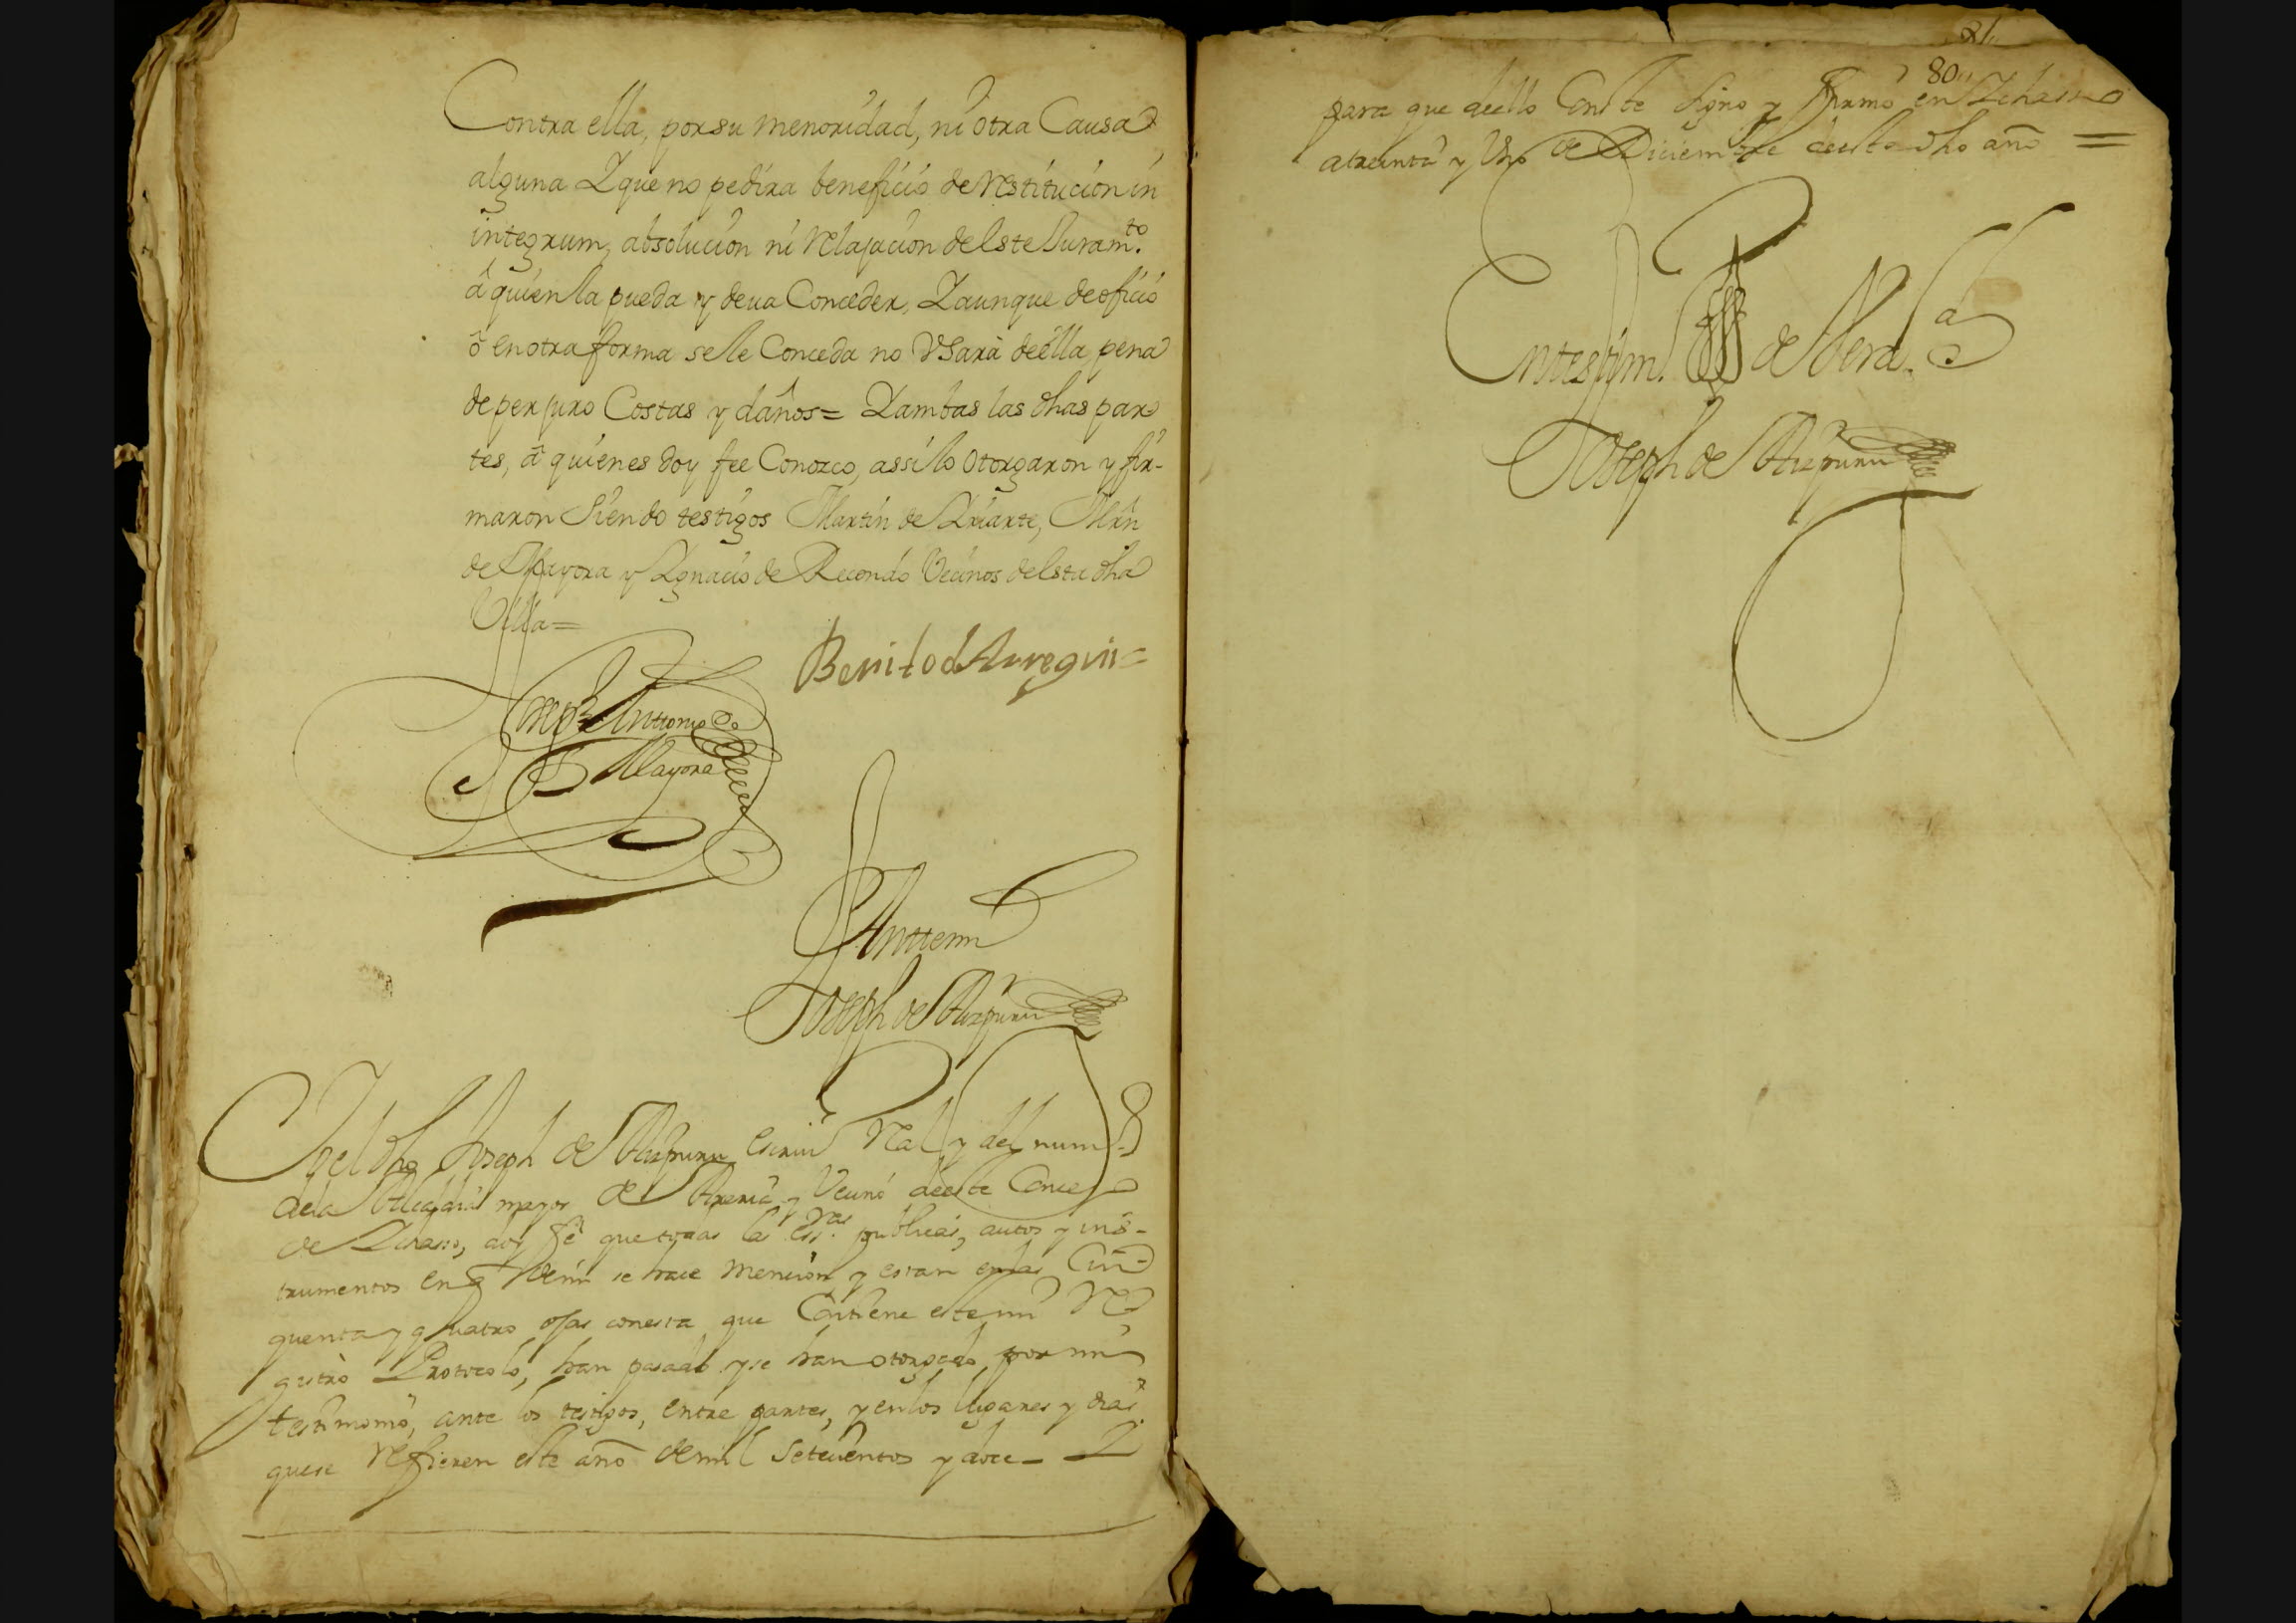 Contra ella, por su menoridad, ni otra Causa
alguna Y que no pedira beneficio de Restitucion in
integrum, absolucion ni Relajacion de este Juram.to
â quien la pueda y deua Conceder, Y aunque de oficio
ô en otra forma se le Conceda no Vsarà de ella pena
de perjuro Costas y daños = Y ambas las dhas par
tes, â quienes doy fee Conozco, assi lo Otorgaron y fir-
maron Siendo testigos Martin de Yriarte, Mrn
de Mayora y Ygnacio de Recondo Vecinos de esta dha
Villa =
Benito d Auregui =
Joseph Anttonio de
Mayora
Anttemi
Joseph de Aizpuru
Yo el dho Joseph de Aizpuru Escriu.o Real y del num.o
de la Alcaldia mayor de Areria y Vecino de este Concejo
de Ichasso, doy fê que todas las ess.ras publicas, autos y ins-
trumentos en q de mi se hace Mencion y estan en las Cin
quenta y quatro ojas con esta que Contiene este mi Re
gistro Protocolo, han pasado y se han otorgado por mi
testimonio, ante los testigos, entre partes, y en los lugares y dias
que se Refieren este año de mil Setecientos y doce - Y
80
para que de ello Conste Signo y Firmo en Ichasso
a treinta y Vno de Diciembre de este dho año =
En testim.o de Verd.a
Joseph de Aizpuru